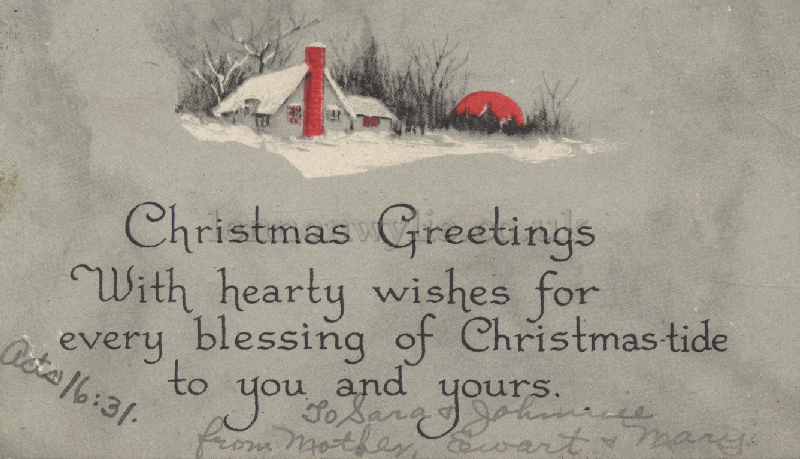 Christmas Greetings
With hearty wishes for
every blessing of Christmas-tide
to you and yours.
Acts 16:31.
To Sara & Johnnie
from Mother, Ewart & Mary.